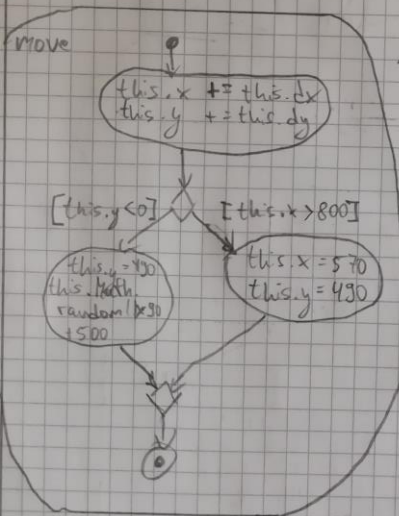 move
this.x += this.dx
this.y += this.dy
[this.y<0]
[this.x>800]
this.y=490
this.Math
random()*90
+500
this.x = 570
this.y = 490